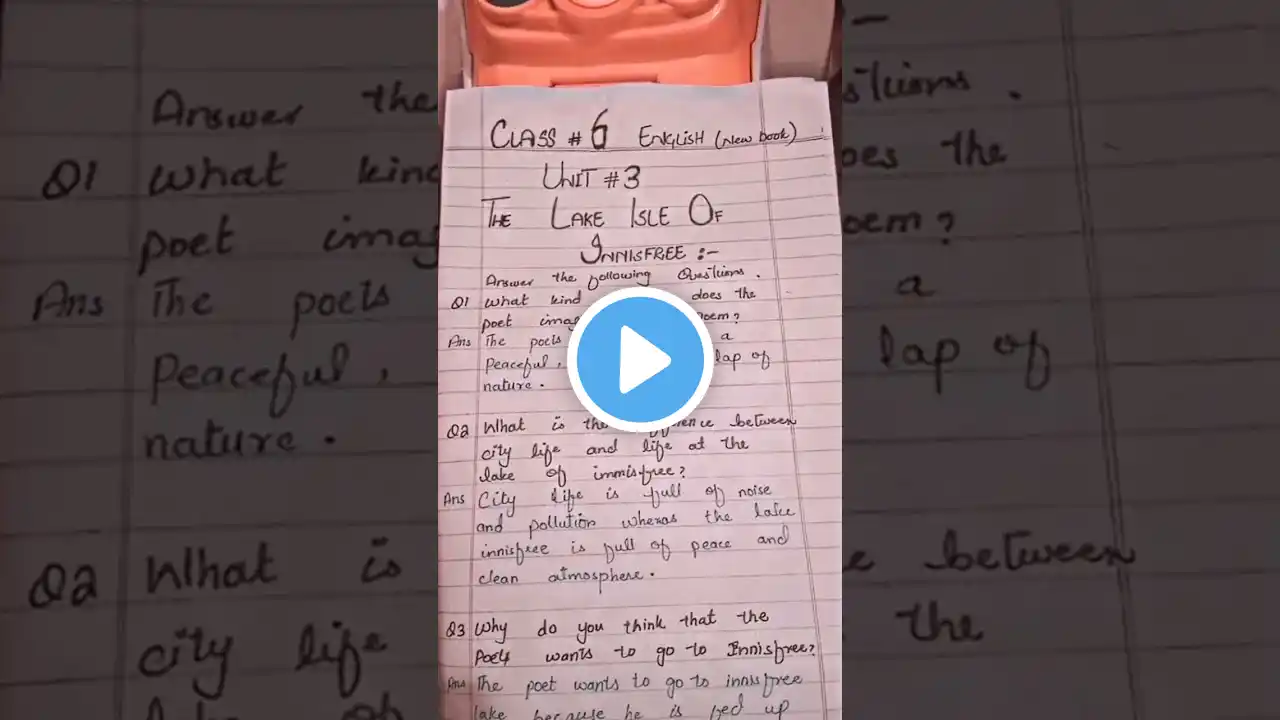 CLASS # 6 ENGLISH (New book)
UNIT # 3
THE LAKE ISLE OF
INNISFREE :-
Answer the following Questions.
Q1 What kind does the
poet imag poem?
Ans The poets a
Peaceful, lap of
nature.
Q2 What is the between
city life and life at the
lake of innisfree?
Ans City life is full of noise
and pollution wheras the lake
innisfree is full of peace and
clean atmosphere.
Q3 Why do you think that the
Poets wants to go to Innisfree?
Ans The poet wants to go to innisfree
lake because he is fed up